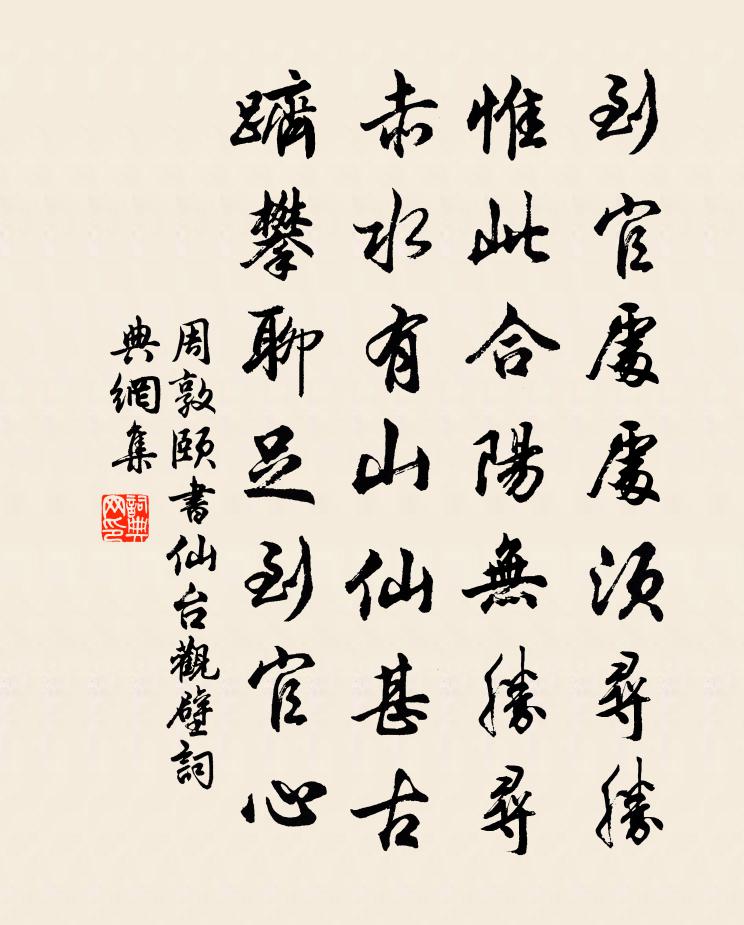 到官處處須尋勝
惟此合陽無勝尋
赤水有山仙甚古
躋攀聊足到官心
周敦頤書仙台觀壁詞
典網集
詞典
网印